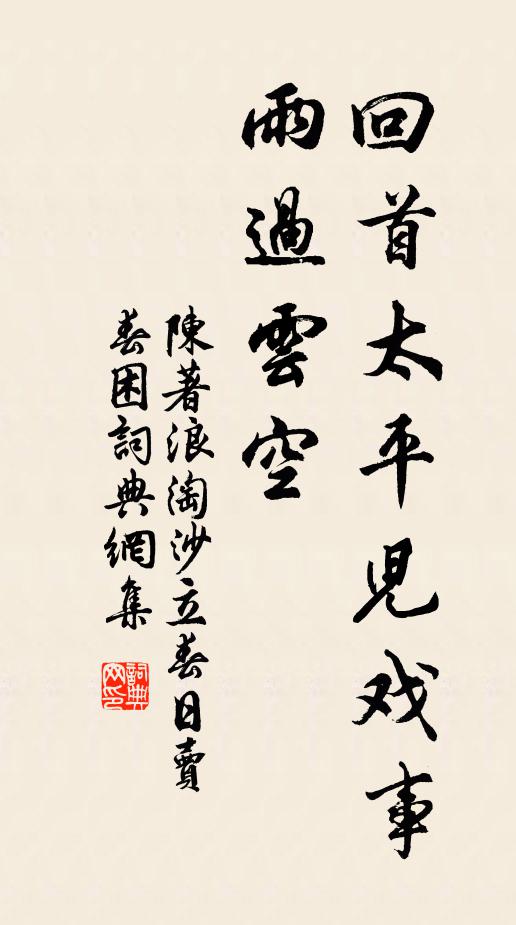 回首太平兒戏事
雨過雲空
陳著浪淘沙立春日賣
春困詞典網集
詞典网印